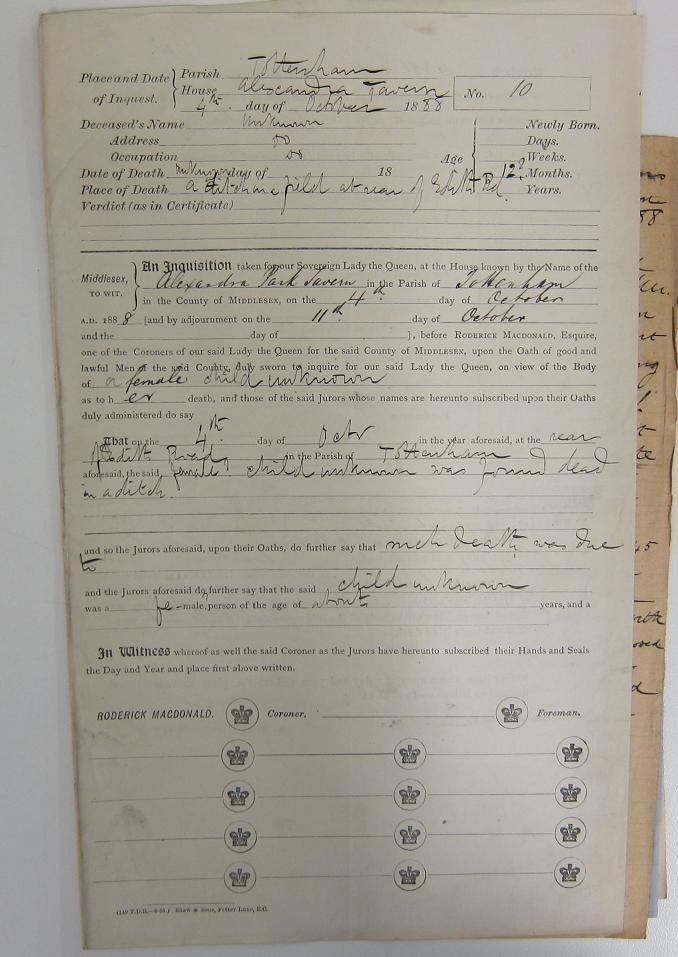 Place and Date of Inquest.
Parish Tottenham
House Alexandra Tavern
4th day of October 1888
No. 10
Deceased's Name unknown
Address do
Occupation do
Age
Newly Born.
Days.
Weeks.
12? Months.
Years.
Date of Death unknown day of 18
Place of Death a ditch in a field at rear of Edith Rd
Verdict (as in Certificate)
Middlesex, TO WIT.
An Inquisition taken for our Sovereign Lady the Queen, at the House known by the Name of the
Alexandra Park Tavern in the Parish of Tottenham
in the County of MIDDLESEX, on the 4th day of October
A.D. 1888 [and by adjournment on the 11th day of October
and the day of ], before RODERICK MACDONALD, Esquire,
one of the Coroners of our said Lady the Queen for the said County of MIDDLESEX, upon the Oath of good and
lawful Men of the said County, duly sworn to inquire for our said Lady the Queen, on view of the Body
of a female child unknown
as to her death, and those of the said Jurors whose names are hereunto subscribed upon their Oaths
duly administered do say
That on the 4th day of Octr in the year aforesaid, at the rear
of Edith Road, in the Parish of Tottenham
aforesaid, the said female child unknown was found dead
in a ditch.
and so the Jurors aforesaid, upon their Oaths, do further say that such death was due
to
and the Jurors aforesaid do further say that the said child unknown
was a fe-male, person of the age of about years, and a
In Witness whereof as well the said Coroner as the Jurors have hereunto subscribed their Hands and Seals
the Day and Year and place first above written.
RODERICK MACDONALD. Coroner. Foreman.
Shaw & Sons, Fetter Lane, E.C.